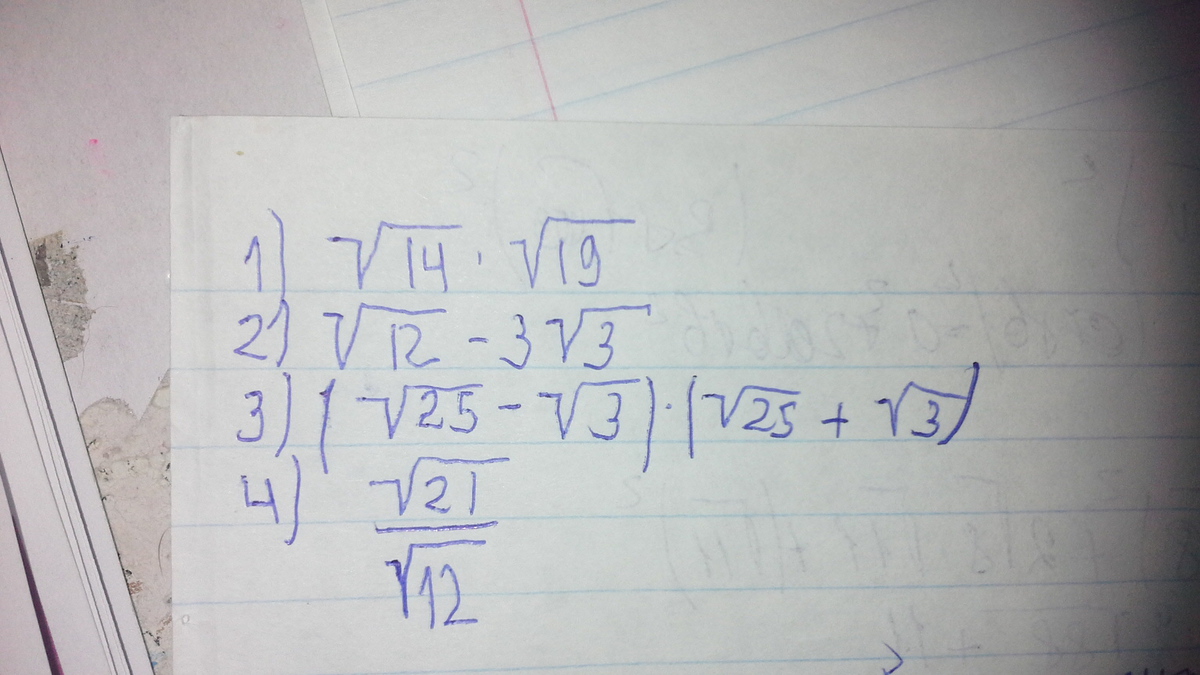 1) √14 · √19
2) √12 - 3√3
3) (√25 - √3) · (√25 + √3)
4) √21
√12